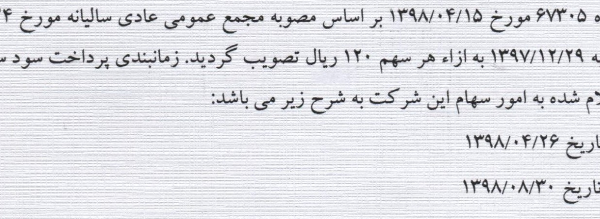 ۶۷۳۰۵ مورخ ۱۳۹۸/۰۴/۱۵ بر اساس مصوبه مجمع عمومی عادی سالیانه مورخ
۱۳۹۷/۱۲/۲۹ به ازاء هر سهم ۱۲۰ ریال تصویب گردید. زمانبندی پرداخت سود
شده به امور سهام این شرکت به شرح زیر می باشد:
۱۳۹۸/۰۴/۲۶
تاریخ ۱۳۹۸/۰۸/۳۰